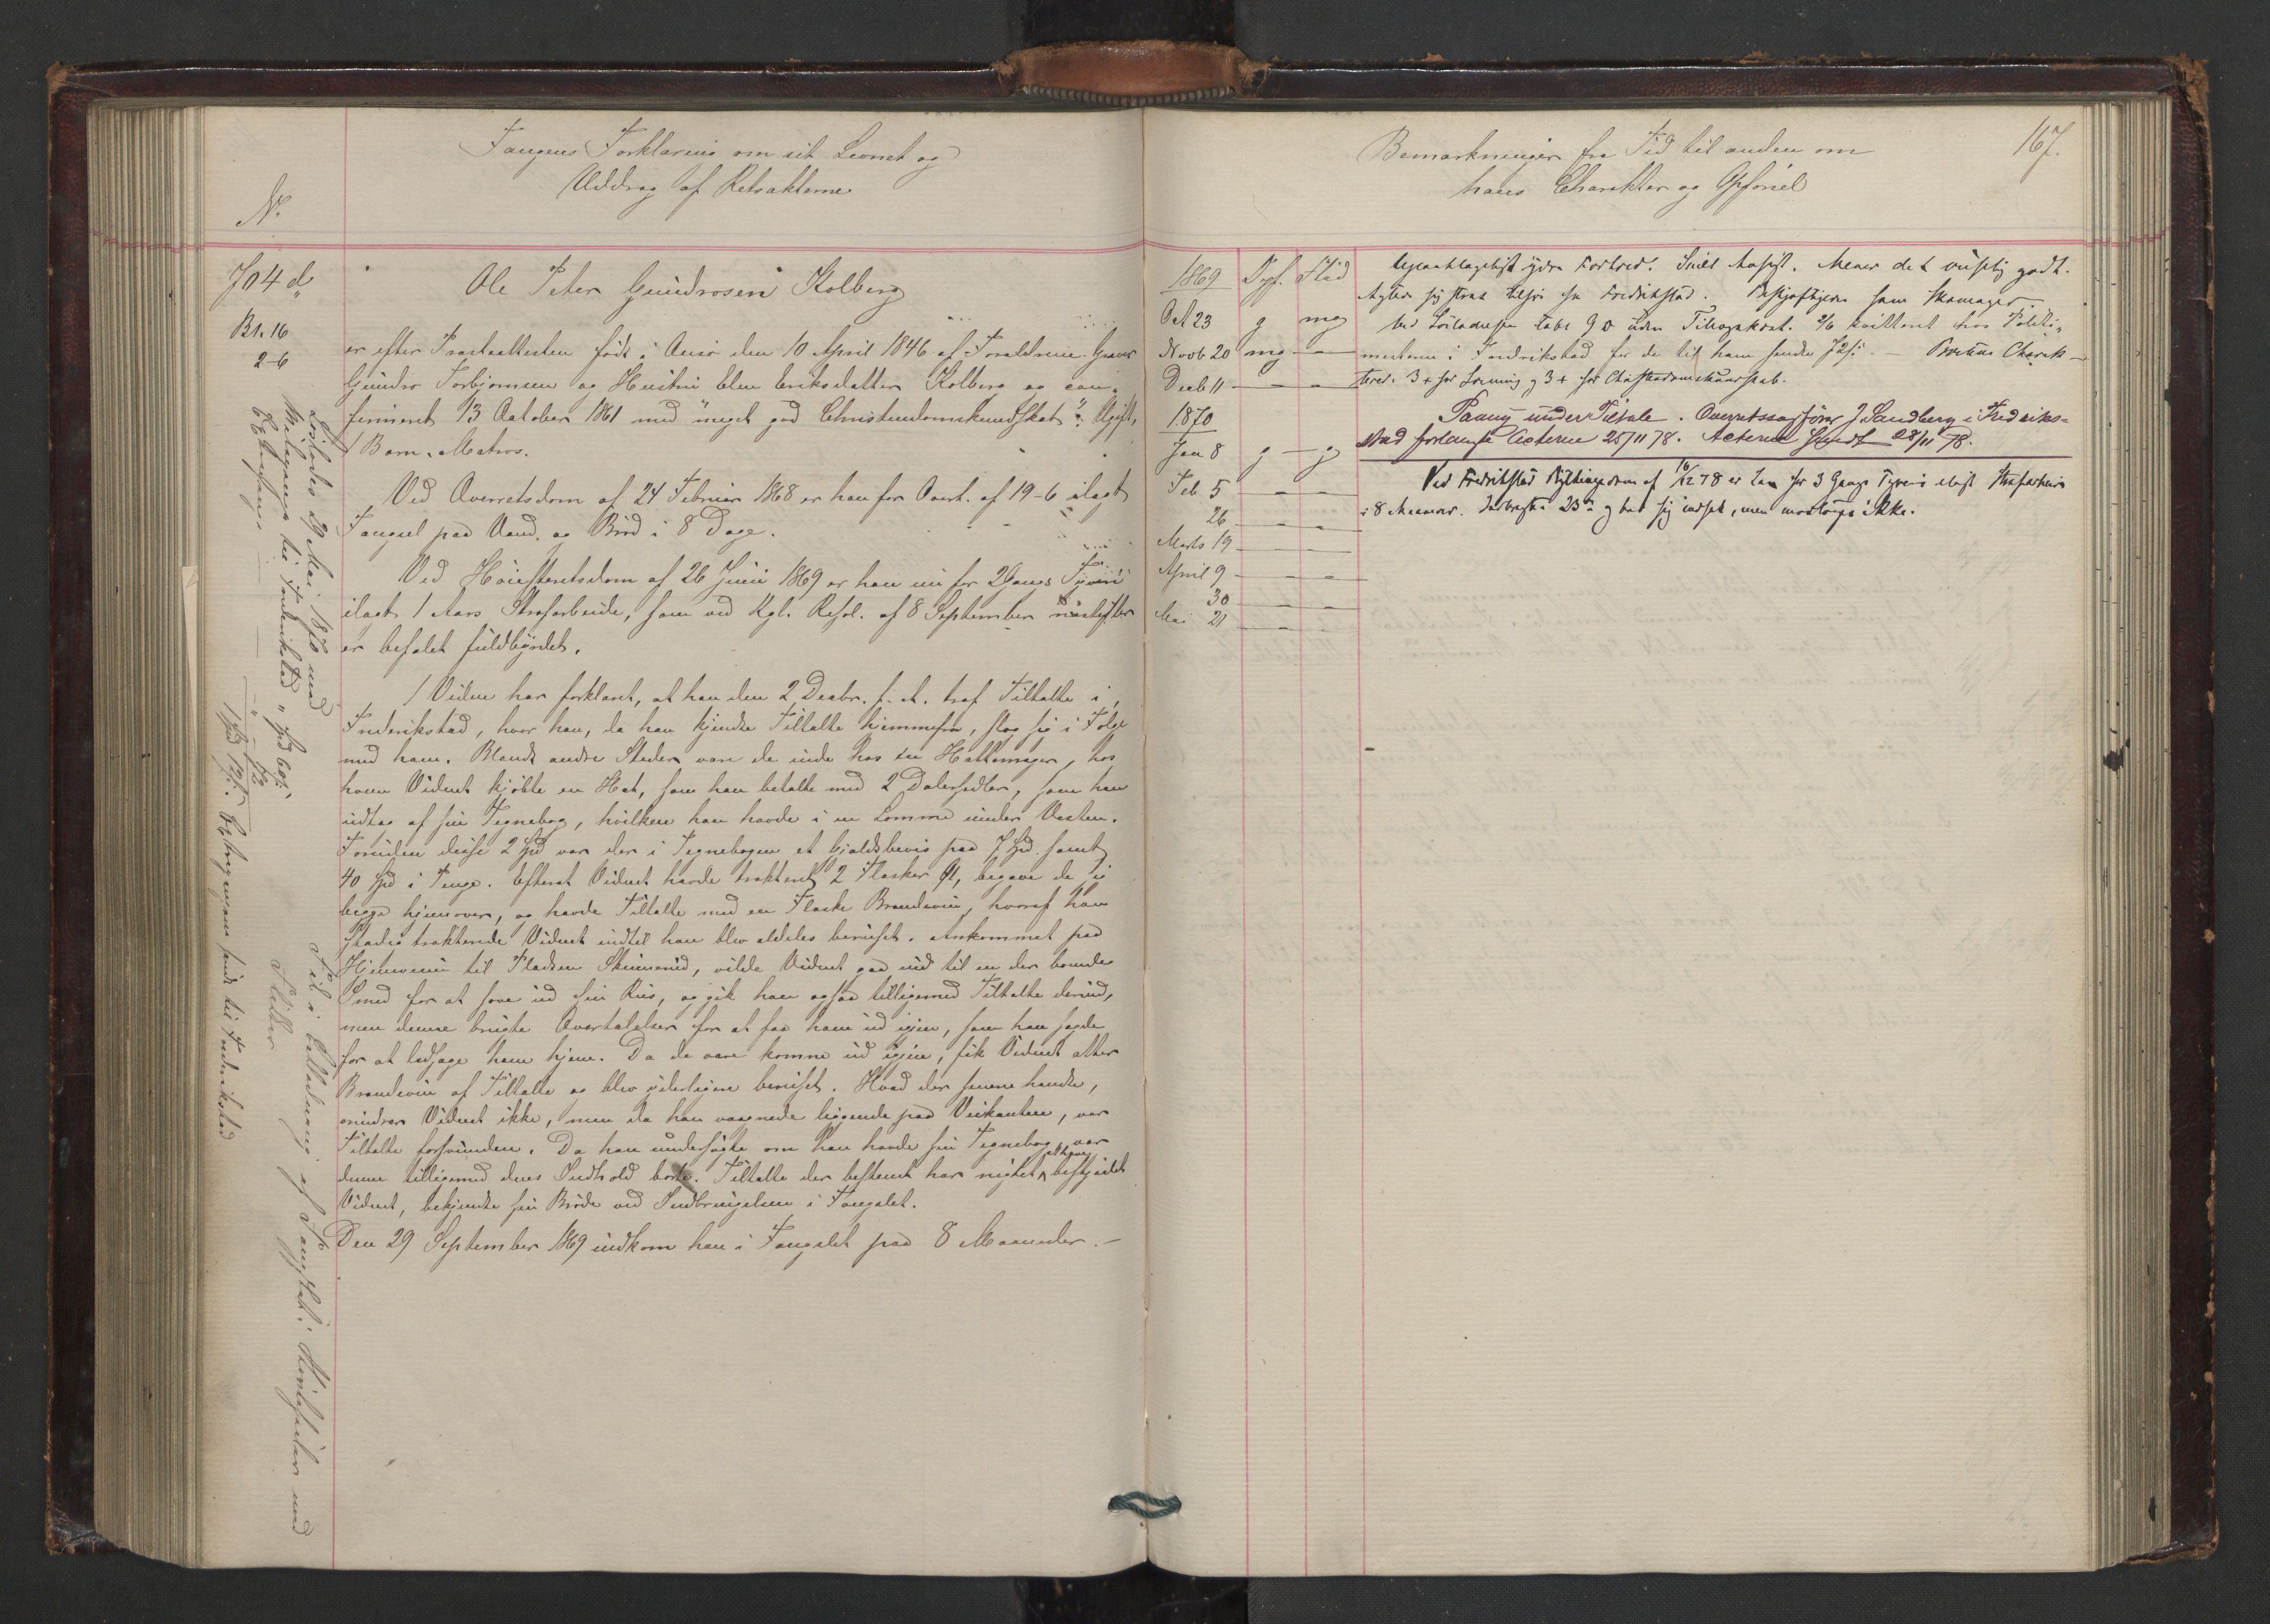 Fangens Forklaring om sit Levnet og
Uddrag af Retsakterne
No.
704 d
B1. 16
2-6
Ole Peter Gundrosen Kolberg
er efter Præsteattesten født i Onsø den 10 April 1846 af Forældrene Graver
Gundro Torbjørnsen og Hustru Elen Eriksdatter Kolberg og con-
firmeret 13 October 1861 med "meget god Christendomskundskab". Ugift,
1 Barn. Matros.
Ved Overretsdom af 24 Februar 1868 er han for Overt. af 19-6 ilagt
Fængsel paa Vand og Brød i 8 Dage.
Ved Høiesteretsdom af 26 Juni 1869 er han nu for 2 Gangs Tyveri
ilagt 1 Aars Strafarbeide, som ved Kgl. Resol. af 8 September næstefter
er befalet fuldbyrdet.
1 Vidne har forklaret, at han den 2 Decbr. f. A. traf Tiltalte i
Frederikstad, hvor han, da han kjendte Tiltalte hjemmefra, slog sig i Følge
med ham. Blandt andre Steder vare de inde hos en Hattemager, hos
hvem Vidnet kjøbte en Hat, som han betalte med 2 Dalersedler, som han
udtog af sin Tegnebog, hvilken han havde i en Lomme under Vesten.
Foruden disse 2 Spd var der i Tegnebogen et Gjældsbevis paa 7 Spd. samt
40 Spd i Penge. Efterat Vidnet havde trakteret 2 Flasker Øl, begave de sig
begge hjemover, og havde Tiltalte med en Flaske Brændeviin, hvoraf han
stadig trakterede Vidnet indtil han blev aldeles beruset. Ankommet paa
Hjemveien til Pladsen Skimerud, vilde Vidnet gaa ind til en der boende
Smed for at sove ud sin Rus, og gik han ogsaa tilligemed Tiltalte derind,
men denne brugte Overtalelser for at faa ham ud igjen, som han sagde
for at ledsage ham hjem. Da de vare komne ud igjen, fik Vidnet atter
Brændeviin af Tiltalte og blev yderligere beruset. Hvad der senere hændte,
erindrer Vidnet ikke, men da han vaagnede liggende paa Veikanten, var
Tiltalte forsvunden. Da han undersøgte om han havde sin Tegnebog, var
denne tilligemed dens Indhold borte. Tiltalte der bestemt har nægtet at have bestjaalet
Vidnet, bekjendte sin Brøde ved Indbringelsen i Fængslet.
Den 29 September 1869 indkom han i Fængslet paa 8 Maaneder.
Løslades 29 Mai 1870 med
Reisepenge til Frederikstad " Spd 60 s.
1 Spd 12 s.
sendt til Frederikstad
Bemærkninger fra Tid til anden om
hans Charakter og Opførsel
167.
1869 Opf. Flid
Oct 23 g mg
Novb 20 mg —
Decb 11 — —
1870
Jan 8 g — g
Feb 5 — —
26 — —
Marts 19 — —
April 9 — —
30 — —
Mai 21 — —
Upaaklageligt ydre Forhold. Snilt Ansigt. Mener det vistnok godt.
Agter sig strax tilsøs fra Fredrikstad. Beskjæftiges som Skomager.
Ved Løsladelsen 2/6 kvitteret hos Politi-
mesteren i Fredrikstad for de til ham sendte 72 s. — Charak-
terer: 3+ for Læsning og 3+ for Christendomskundskab.
Paany under Tiltale. Overretssagfører J Sandberg i Fredriks-
stad forlangte Acterne 25/11 78. Acterne sendt 28/11 78.
Ved Fredrikstad Bythingsdom af 16/12 78 er han for 3 Gangs Tyveri ilagt Strafarbeide
i 8 Maaneder.